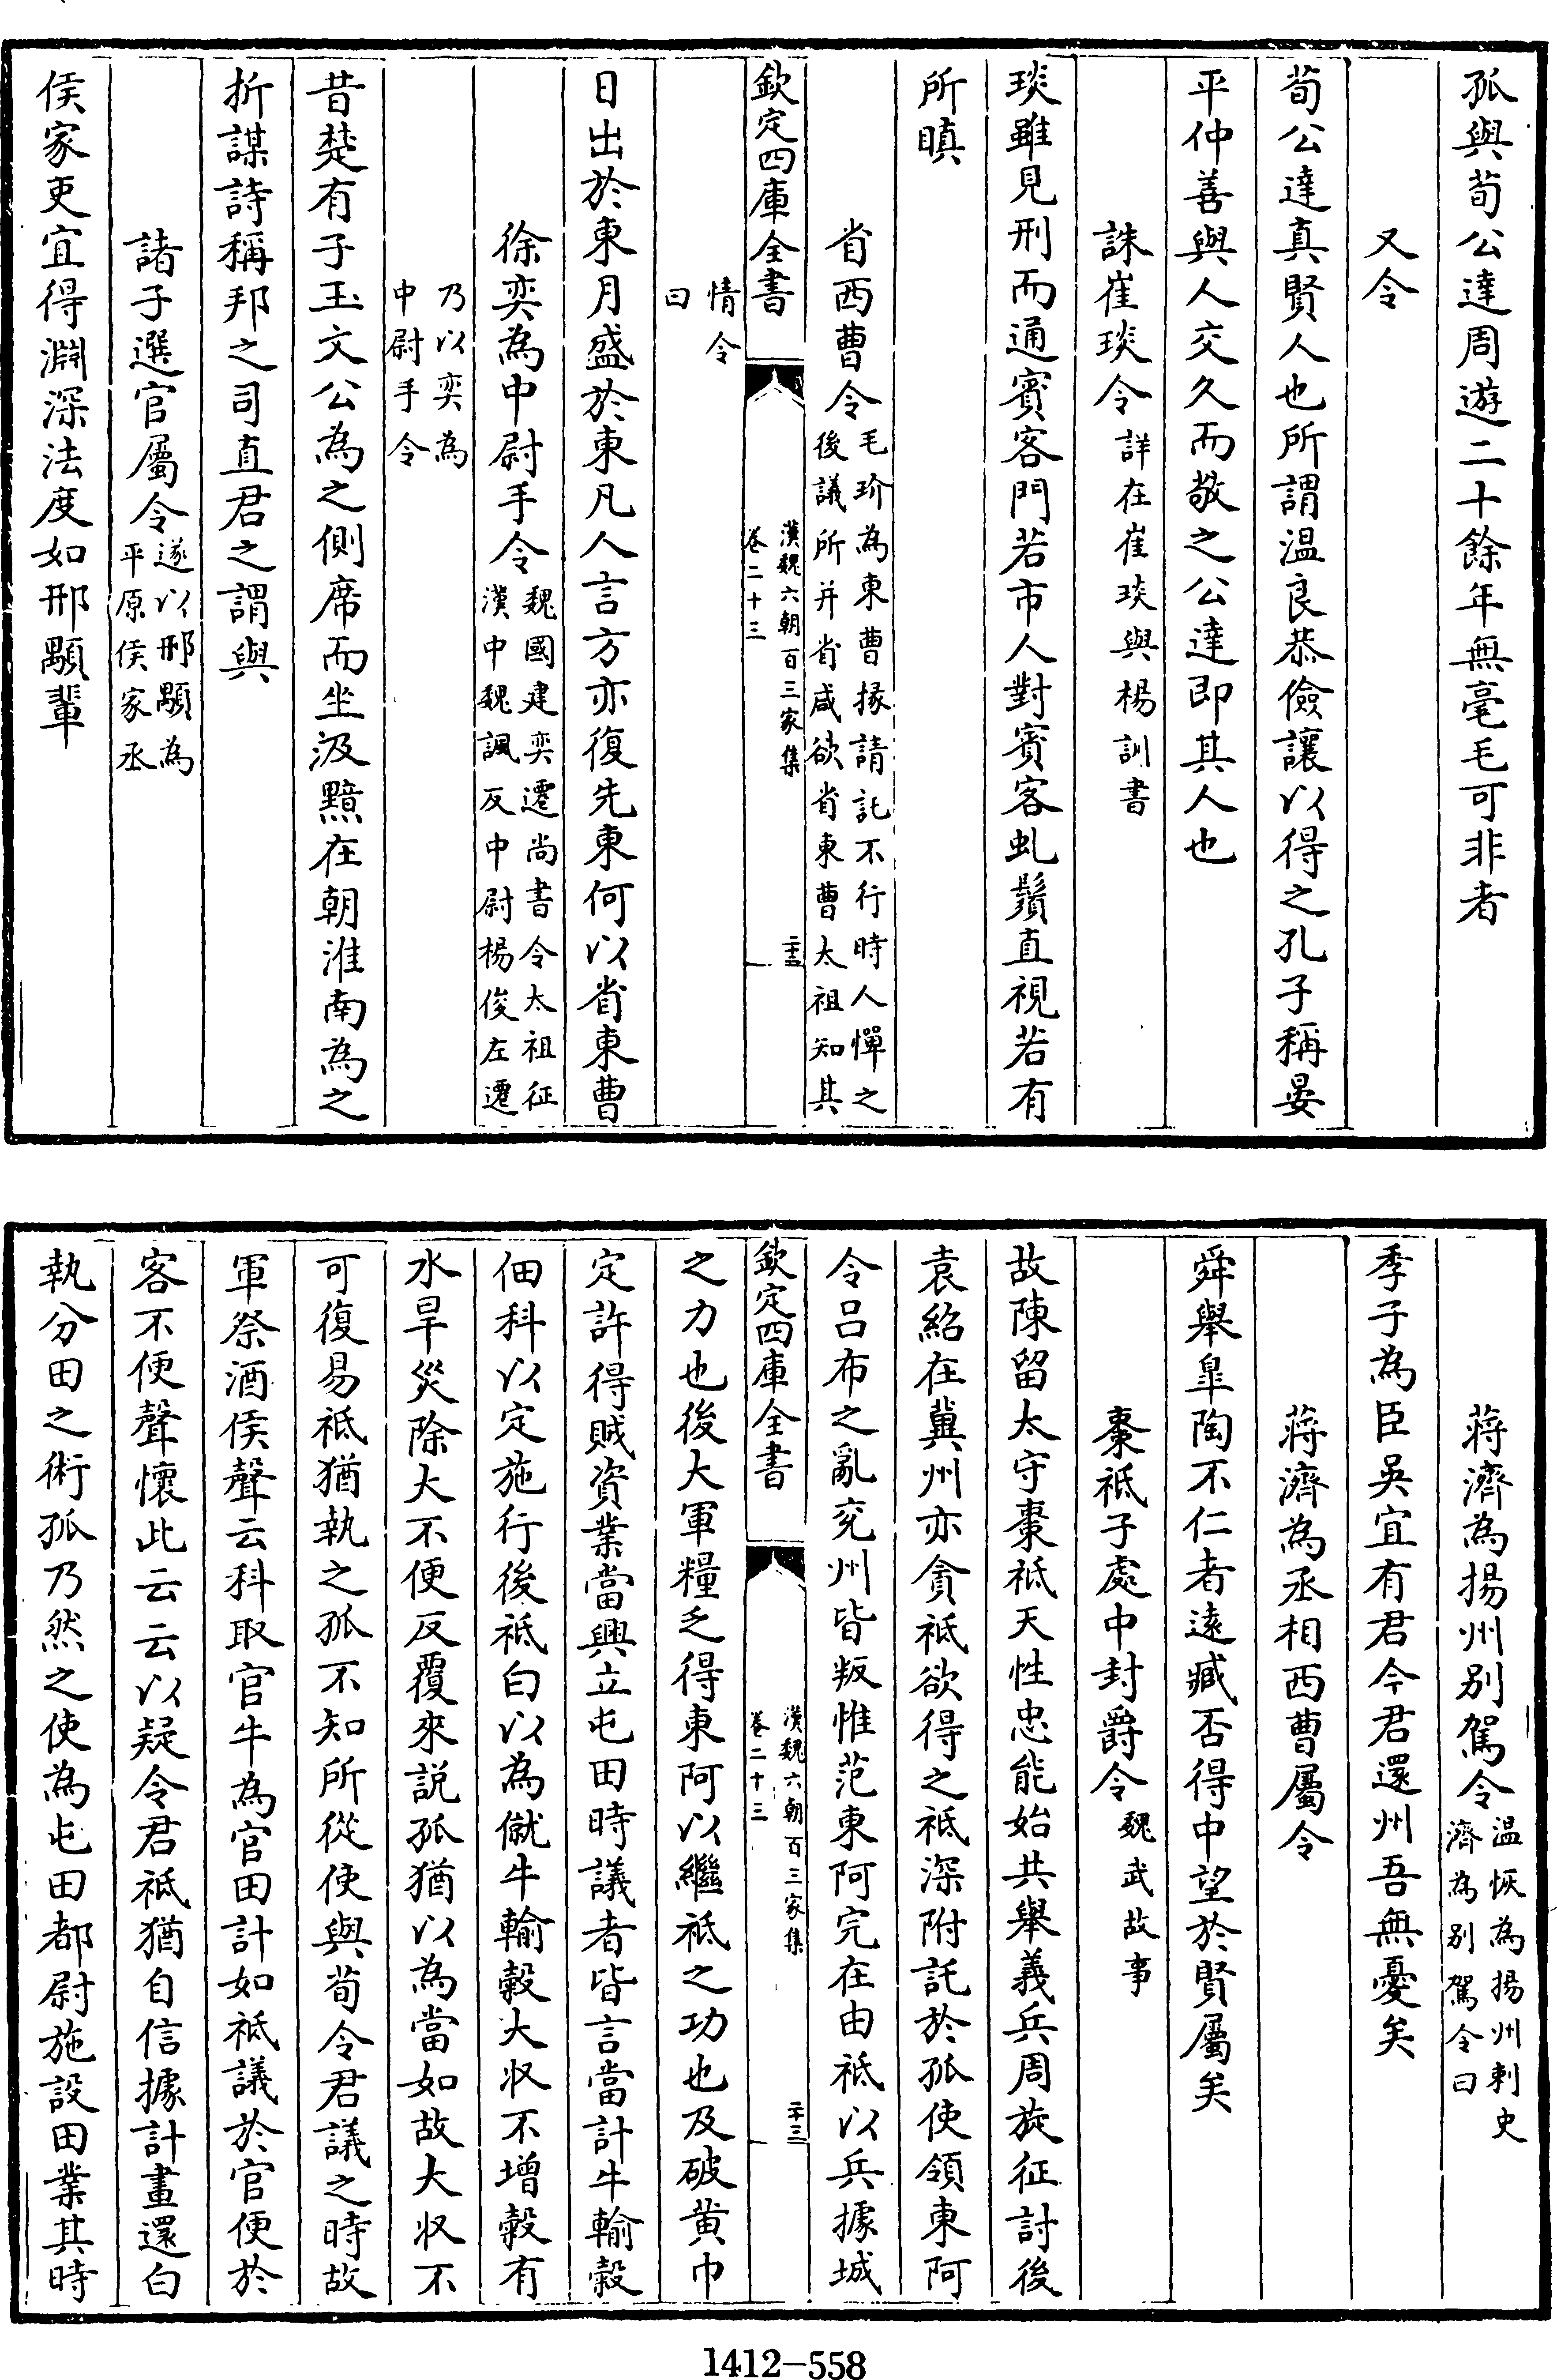 孤與荀公達周遊二十餘年無毫毛可非者
又令
荀公達真賢人也所謂温良恭儉讓以得之孔子稱晏
平仲善與人交久而敬之公達即其人也
誅崔琰令詳在崔琰與楊訓書
琰雖見刑而通賓客門若市人對賓客虬鬚直視若有
所瞋
省西曹令毛玠為東曹掾請託不行時人憚之
後議所并省咸欲省東曹太祖知其
欽定四庫全書
漢魏六朝百三家集
卷二十三
二十三
情令
曰
日出於東月盛於東凡人言方亦復先東何以省東曹
徐奕為中尉手令魏國建奕遷尚書令太祖征
漢中魏諷反中尉楊俊左遷
乃以奕為
中尉手令
昔楚有子玉文公為之側席而坐汲黯在朝淮南為之
折謀詩稱邦之司直君之謂與
諸子選官屬令遂以邢顒為
平原侯家丞
侯家吏宜得淵深法度如邢顒輩
蔣濟為揚州别駕令温恢為揚州刺史
濟為别駕令曰
季子為臣吳宜有君今君還州吾無憂矣
蔣濟為丞相西曹屬令
舜舉臯陶不仁者遠臧否得中望於賢屬矣
棗祗子處中封爵令魏武故事
故陳留太守棗祗天性忠能始共舉義兵周旋征討後
袁紹在冀州亦貪祗欲得之祗深附託於孤使領東阿
令吕布之亂兖州皆叛惟范東阿完在由祗以兵據城
欽定四庫全書
漢魏六朝百三家集
卷二十三
二十三
之力也後大軍糧乏得東阿以繼祗之功也及破黄巾
定許得賊資業當興立屯田時議者皆言當計牛輸穀
佃科以定施行後祗白以為僦牛輸穀大收不增穀有
水旱災除大不便反覆來説孤猶以為當如故大收不
可復易祗猶執之孤不知所從使與荀令君議之時故
軍祭酒侯聲云科取官牛為官田計如祗議於官便於
客不便聲懷此云云以疑令君祗猶自信據計畫還白
執分田之術孤乃然之使為屯田都尉施設田業其時
1412-558